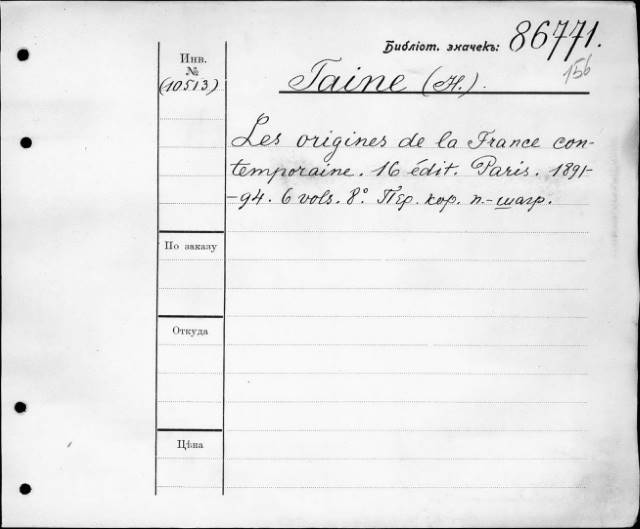 Библіот. значекъ: 86771.
156
Инв.
№
(10513)
Taine (H.).
Les origines de la France con-
temporaine. 16 édit. Paris. 1891-
-94. 6 vols. 8º. Пер. кор. п.-шагр.
По заказу
Откуда
Цѣна